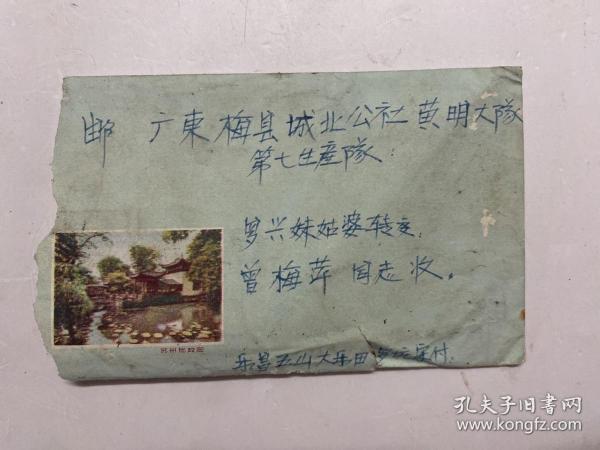 邮 广東梅县城北公社黄明大隊
第七生産隊
罗兴妹姑婆转交
曾梅萍同志收。
乐昌五山大乐田
付
孔夫子旧书网
www.kongfz.com